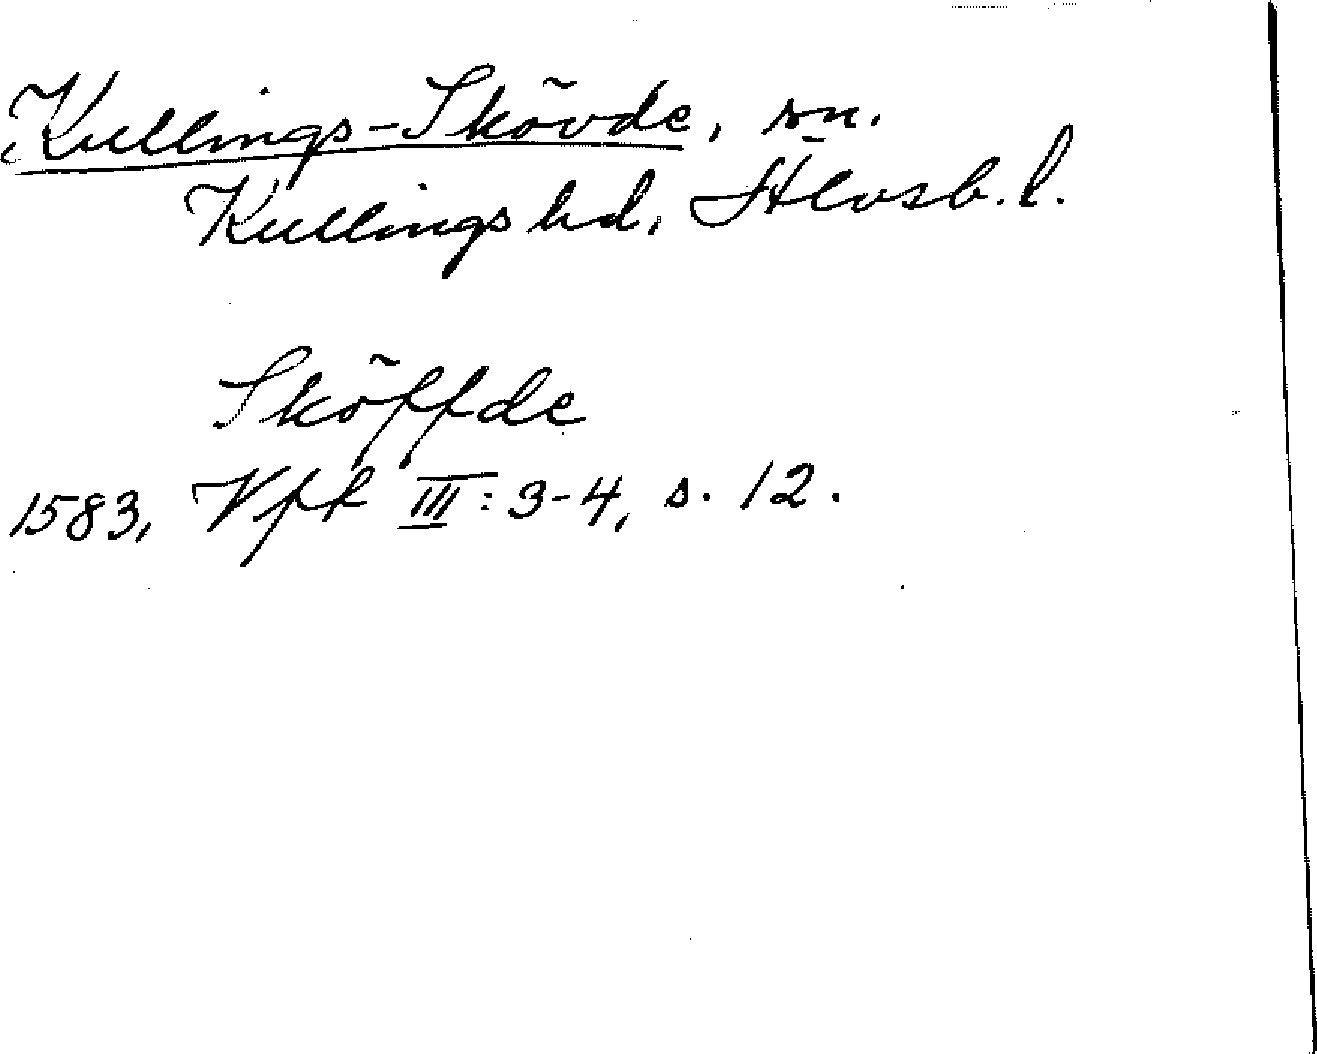 Kullings-Skövde, sn.
Kullings hd, Älvsb. l.
Sköffde
1583, Vfk III: 3-4, s. 12.